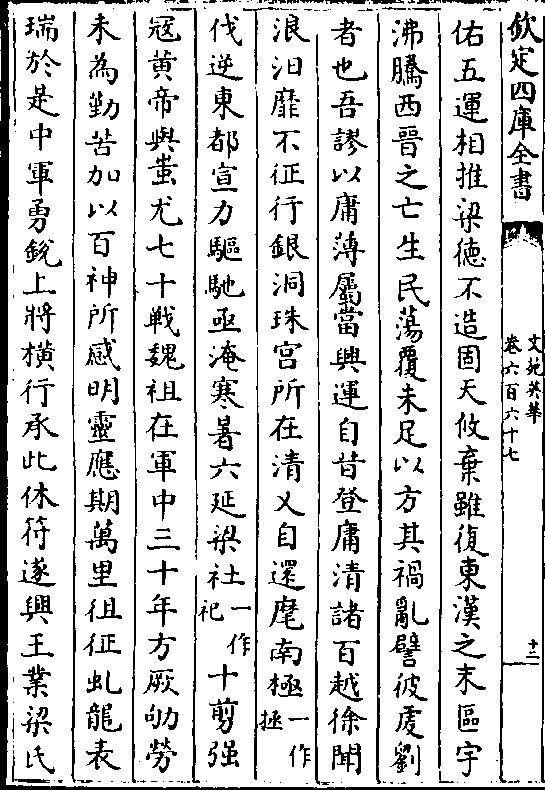 欽定四庫全書
文苑英華
卷六百六十七
十二
佑五運相推梁徳不造固天攸棄雖復東漢之末區宇
沸騰西晉之亡生民蕩覆未足以方其禍亂譬彼虔劉
者也吾謬以庸薄屬當興運自昔登庸清諸百越徐聞
浪泊靡不征行銀洞珠宫所在清乂自還麾南極一作拯
伐逆東都宣力驅馳亟淹寒暑六延梁社一作祀十剪强
冦黄帝與蚩尤七十戰魏祖在軍中三十年方厥劬勞
未為勤苦加以百神所感明靈應期萬里徂征虬龍表
瑞於是中軍勇鋭上將横行承此休符遂興王業梁氏